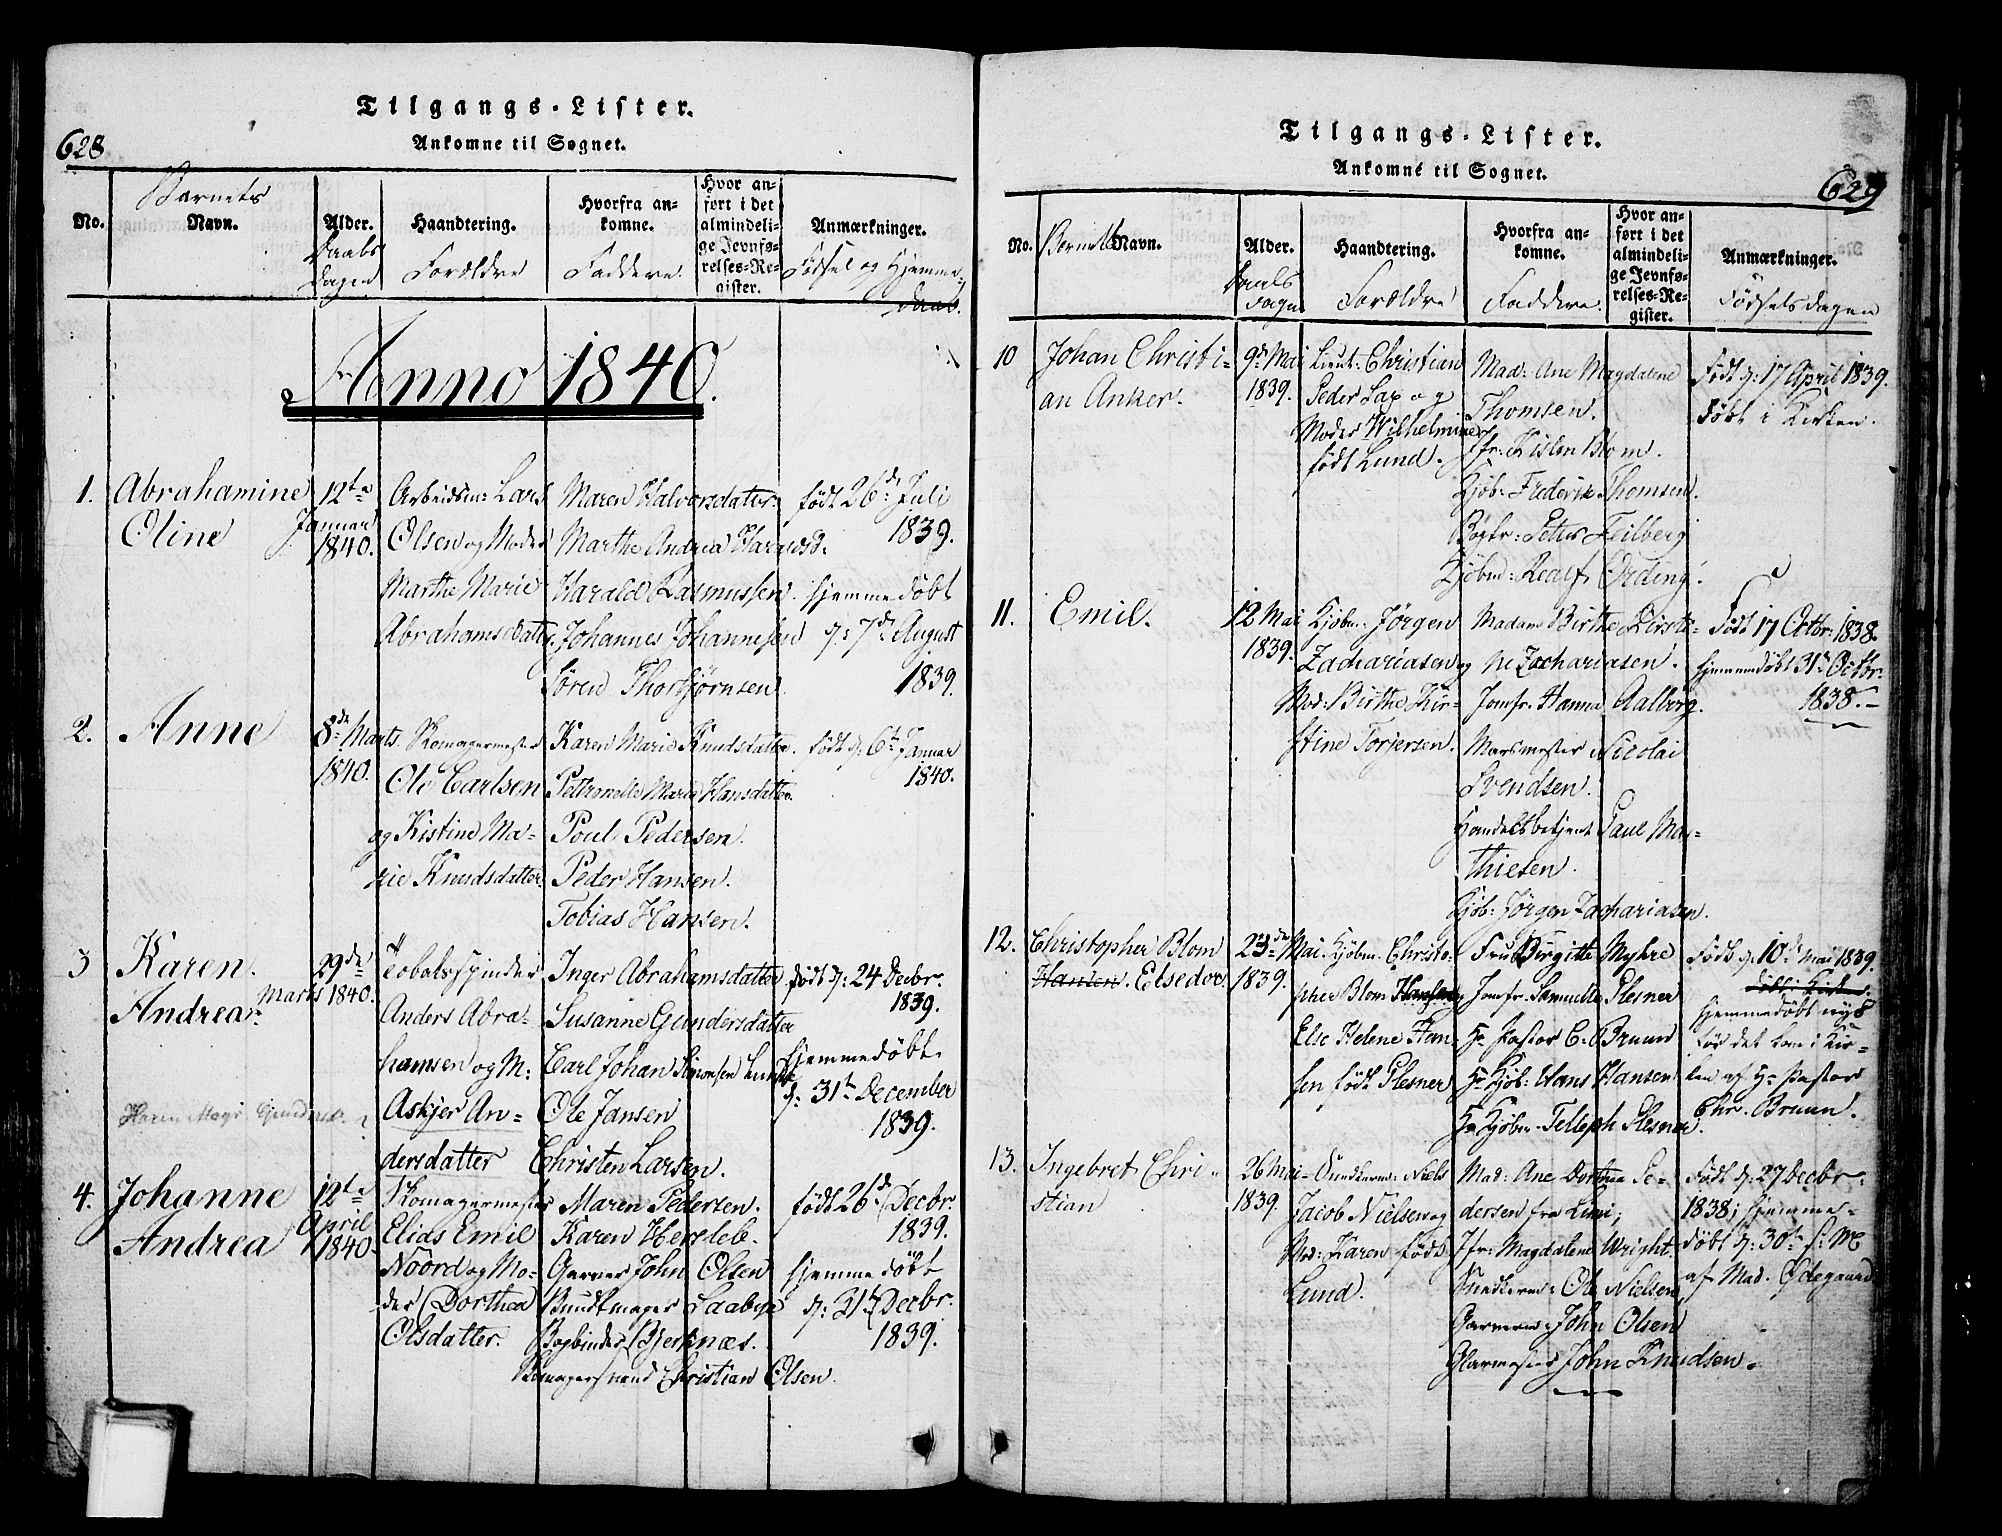 628
Tilgangs-Lister.
Ankomne til Sognet.
No.
Barnets
Navn.
Alder.
Daabs
Dagen
Haandtering.
Forældre
Hvorfra an-
komne.
Faddere.
Hvor an-
ført i det
almindeli-
ge Jevnfø-
relses-Re-
gister.
Anmærkninger.
Fødsel og Hjemme-
daab.
Anno 1840.
1.
Abrahamine
Oline
12te
Januar
1840.
Arbeidsm: Lars
Olsen og Moder
Marthe Marie
Abrahamsdatter
Maren Halvorsdatter
Marthe Andrea Haraldsd.
Harald Rasmussen.
Johannes Johannesen
Søren Thorbjørnsen.
født 26de Juli
1839.
hjemmedøbt
d: 7de August
1839.
2.
Anne
8de Marts
1840.
Romagermester
Ole Carlsen
og Kistine Ma-
rie Knudsdatter.
Karen Marie Knudsdatter.
Pettronelle Marie Hansdatter.
Poul Pedersen.
Peder Hansen.
Tobias Hansen.
født d: 6te Januar
1840.
3
Karen
Andrea.
29de
Marts 1840.
Tobaksspinder
Anders Abra-
hamsen og M:
Askjer An-
dersdatter
Karen Marie Gunders
Inger Abrahamsdatter
Susanne Gundersdatter
Carl Johan Simonsen
Ole Jansen
Christen Larsen.
født d: 24 Decbr.
1839.
hjemmedøbt
d: 31te December
1839.
4.
Johanne
Andrea
12te
April
1840.
Romagermester
Elias Emil
Noord og Mo-
der Dorthea
Olsdatter.
Maren Pedersen.
Karen Hersleb.
Garver John Olsen
Bundtmager Laabye
Bogbinder Bjerknæs.
Romagersvend Christian Olsen.
født 26de Decbr.
1839.
hjemmedøbt
d: 31te Decbr.
1839.
Tilgangs-Lister.
Ankomne til Sognet.
629
No.
Barnets
Navn.
Alder.
Daabs
Dagen
Haandtering.
Forældre
Hvorfra an-
komne.
Faddere.
Hvor an-
ført i det
almindeli-
ge Jevnfø-
relses-Re-
gister.
Anmærkninger.
Fødselsdagen
10
Johan Christi-
an Anker.
9de Mai
1839.
Lieut: Christian
Peder Lax og
Moder Wilhelmine
født Lund.
Mad: Ane Magdalene
Thomsen.
Jfr: Kisten Blom.
Kjøb: Frederik Thomsen.
Bogfr: Peter Feilberg
Kjøbmd: Realf Ording.
Født d: 17 April 1839.
døbt i Kirken.
11.
Emil.
12 Mai
1839.
Kjøbm. Jørgen
Zachariasen og
Mod: Birthe Kir-
stine Torjersen.
Madam Birthe Kirsti-
ne Zachariasen.
Jomfr. Hanna Aalborg.
Marsmester Nicolai
Svendsen.
Handelsbetjent Paul Ma-
thiesen.
Kjøb: Jørgen Zachariasen.
Født 17 Octbr: 1838.
hjemmedøbt 31te Octbr.
1838.
12.
Christopher Blom
Hansen. Elsedor.
23de Mai
1839.
Kjøbm. Christo-
pher Blom Hansen og
Else Helene Han-
sen født Plesner
Fru Birgitte Myhre
Jomfr. Samuelle Plesner
Hr Pastor C. Bruun
Hr Kjøb: Hans Hansen
Hr Kjøbm. Telleph Plesner.
Født d: 10de Mai 1839.
døbt i Kirken.
hjemmedøbt nys
før det kom i Kir-
ken af Hr Pastor
Chr. Bruun.
13.
Ingebret Chri-
stian
26 Mai
1839.
Snedkerm: Niels
Jacob Nielsen og
Mod: Karen født
Lund.
Mad: Ane Dorthea Pe-
dersen fra Lini;
Jfr: Magdalene Wright.
Snedkerm: Ole Nielsen
Garverm: John Olsen
Glarmester John Knudsen.
Født d: 27 Decbr.
1838; hjemme-
døbt d: 30te s: M
af Mad. Ødegaard